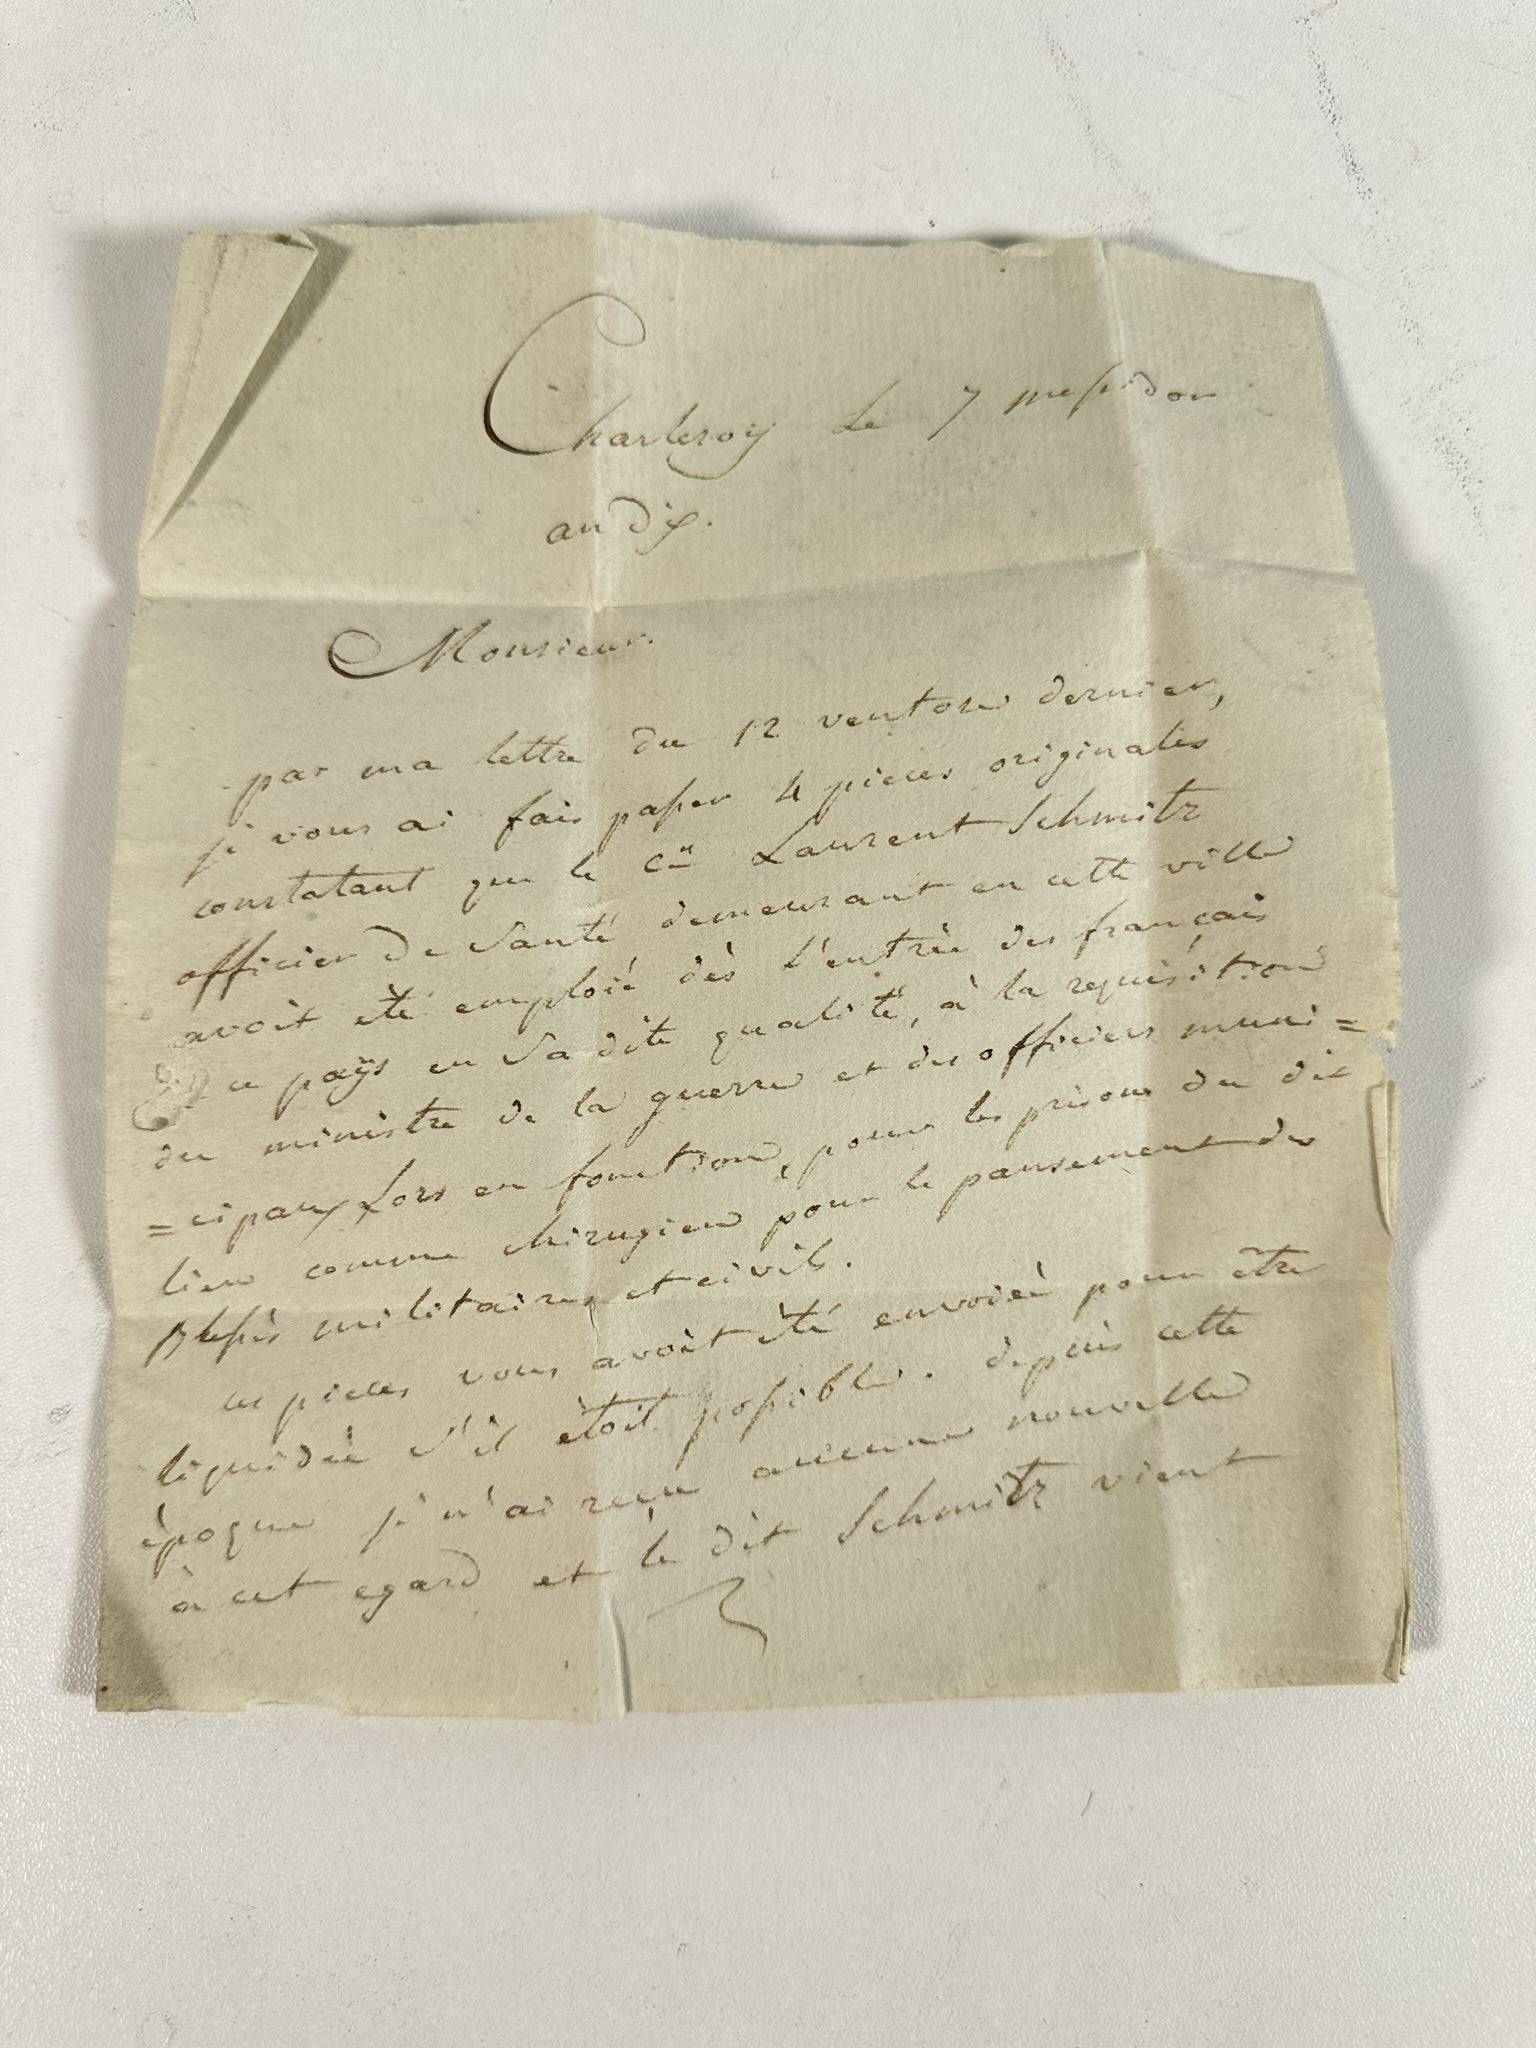 Charleroy Le 7 messidor
an dix.
Monsieur.
par ma lettre du 12 ventose dernier,
je vous ai fais passer 4 pieces originales
constatant que le Cen Laurent Schmitz
officier de Santé demeurant en cette ville
avoit été emploié dès l'entrée des français
ce paÿs en Sa dite qualité, à la requisition
du ministre de la guerre et des officiers muni=
=cipaux Lors en fonction, pour les prisons du dit
lieu comme chirugien pour le pansement des
Blessés militaires et civils.
ces pieces vous avoit été envoiéé pour être
liquidéé S'il étoit possible. depuis cette
époque je n'ai reçu aucune nouvelle
à cet egard et le dit Schmitz vient